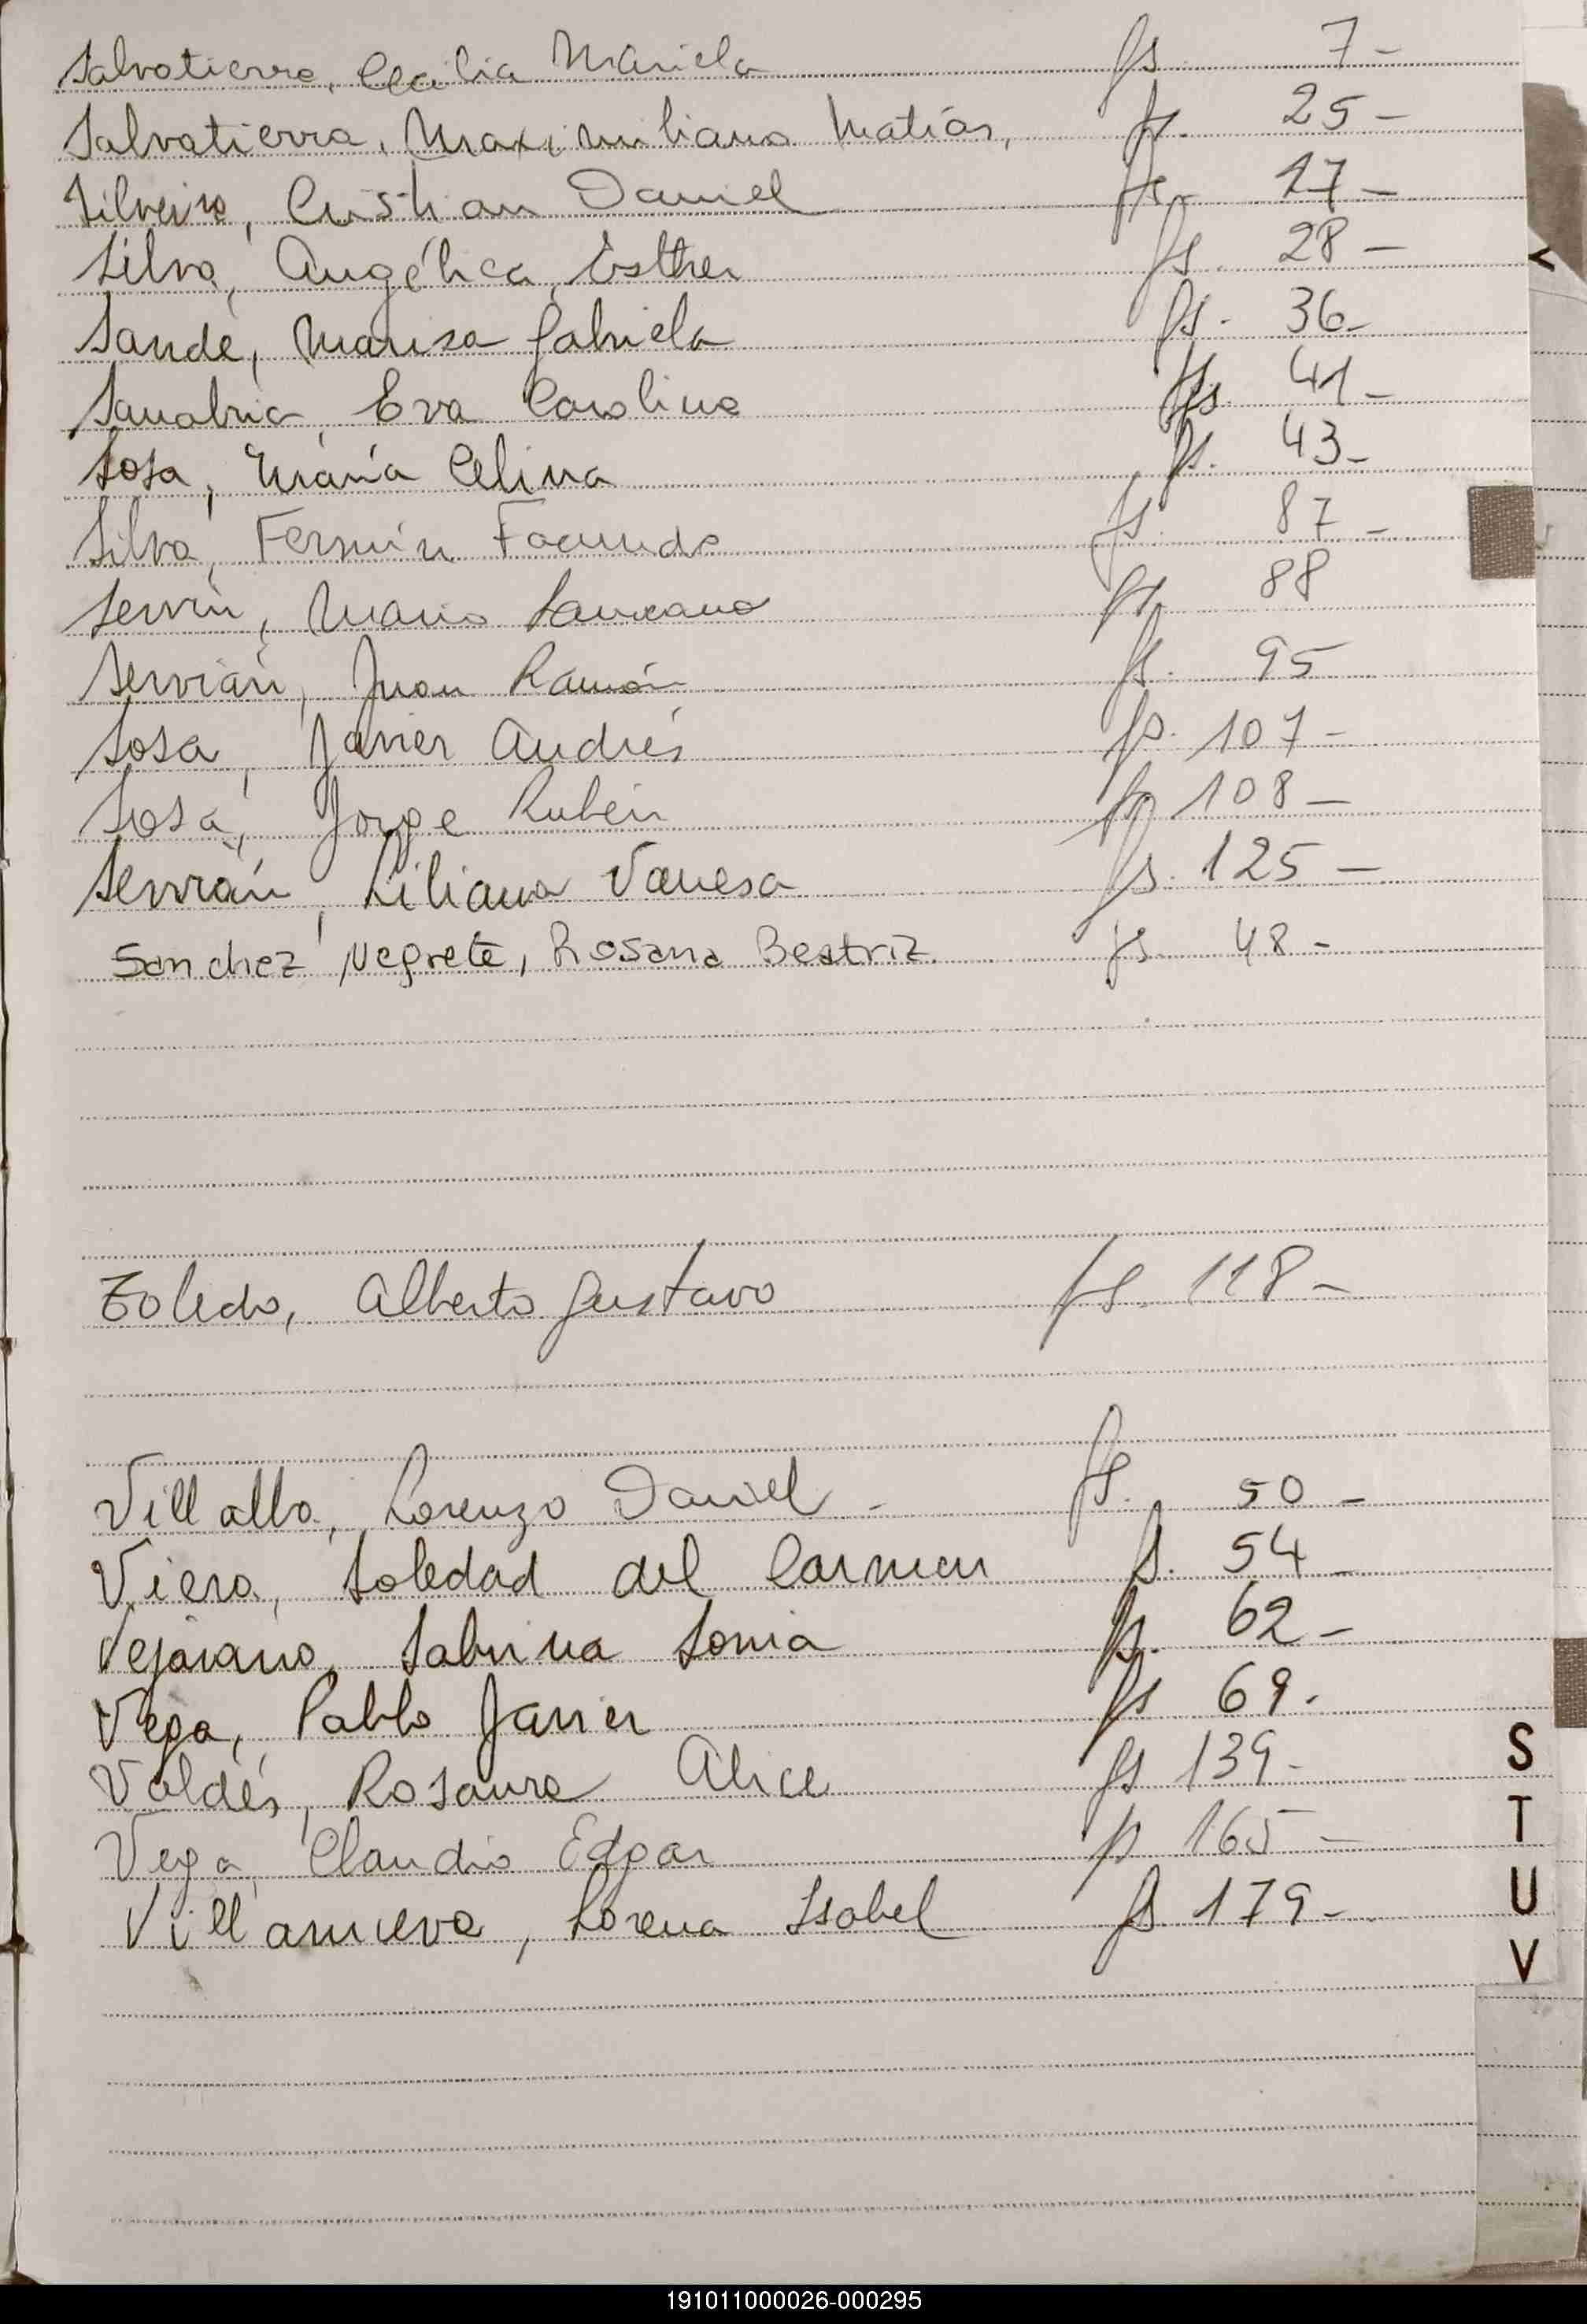 Salvatierra, Cecilia Mariela fs. 7-
Salvatierra, Maximiliano Matías, fs. 25-
Silveira, Cristian Daniel fs. 27-
Silva, Angélica Esther fs. 28-
Sande, Marisa Gabriela fs. 36-
Sanabria, Eva Carolina fs. 41-
Sosa, María Celina fs. 43-
Silva, Fermín Facundo fs. 87-
Servín, Mario fs. 88
Servián, Juan Ramón fs. 95
Sosa, Javier Andrés fs. 107-
Sosa, Jorge Rubén fs. 108-
Servián, Liliana Vanesa fs. 125-
Sanchez Negrete, Rosana Beatriz. fs. 48-
Toledo, Alberto Gustavo fs. 118-
Villalba, Lorenzo Daniel - fs. 50-
Viera, Soledad del Carmen fs. 54-
Vejarano, Sabrina Sonia fs. 62-
Vega, Pablo Javier fs 69.
Valdés, Rosaura Alice fs 139-
Vega, Claudio Edgar fs 165-
Villanueva, Lorena Isabel fs. 179-
S
T
U
V
191011000026-000295